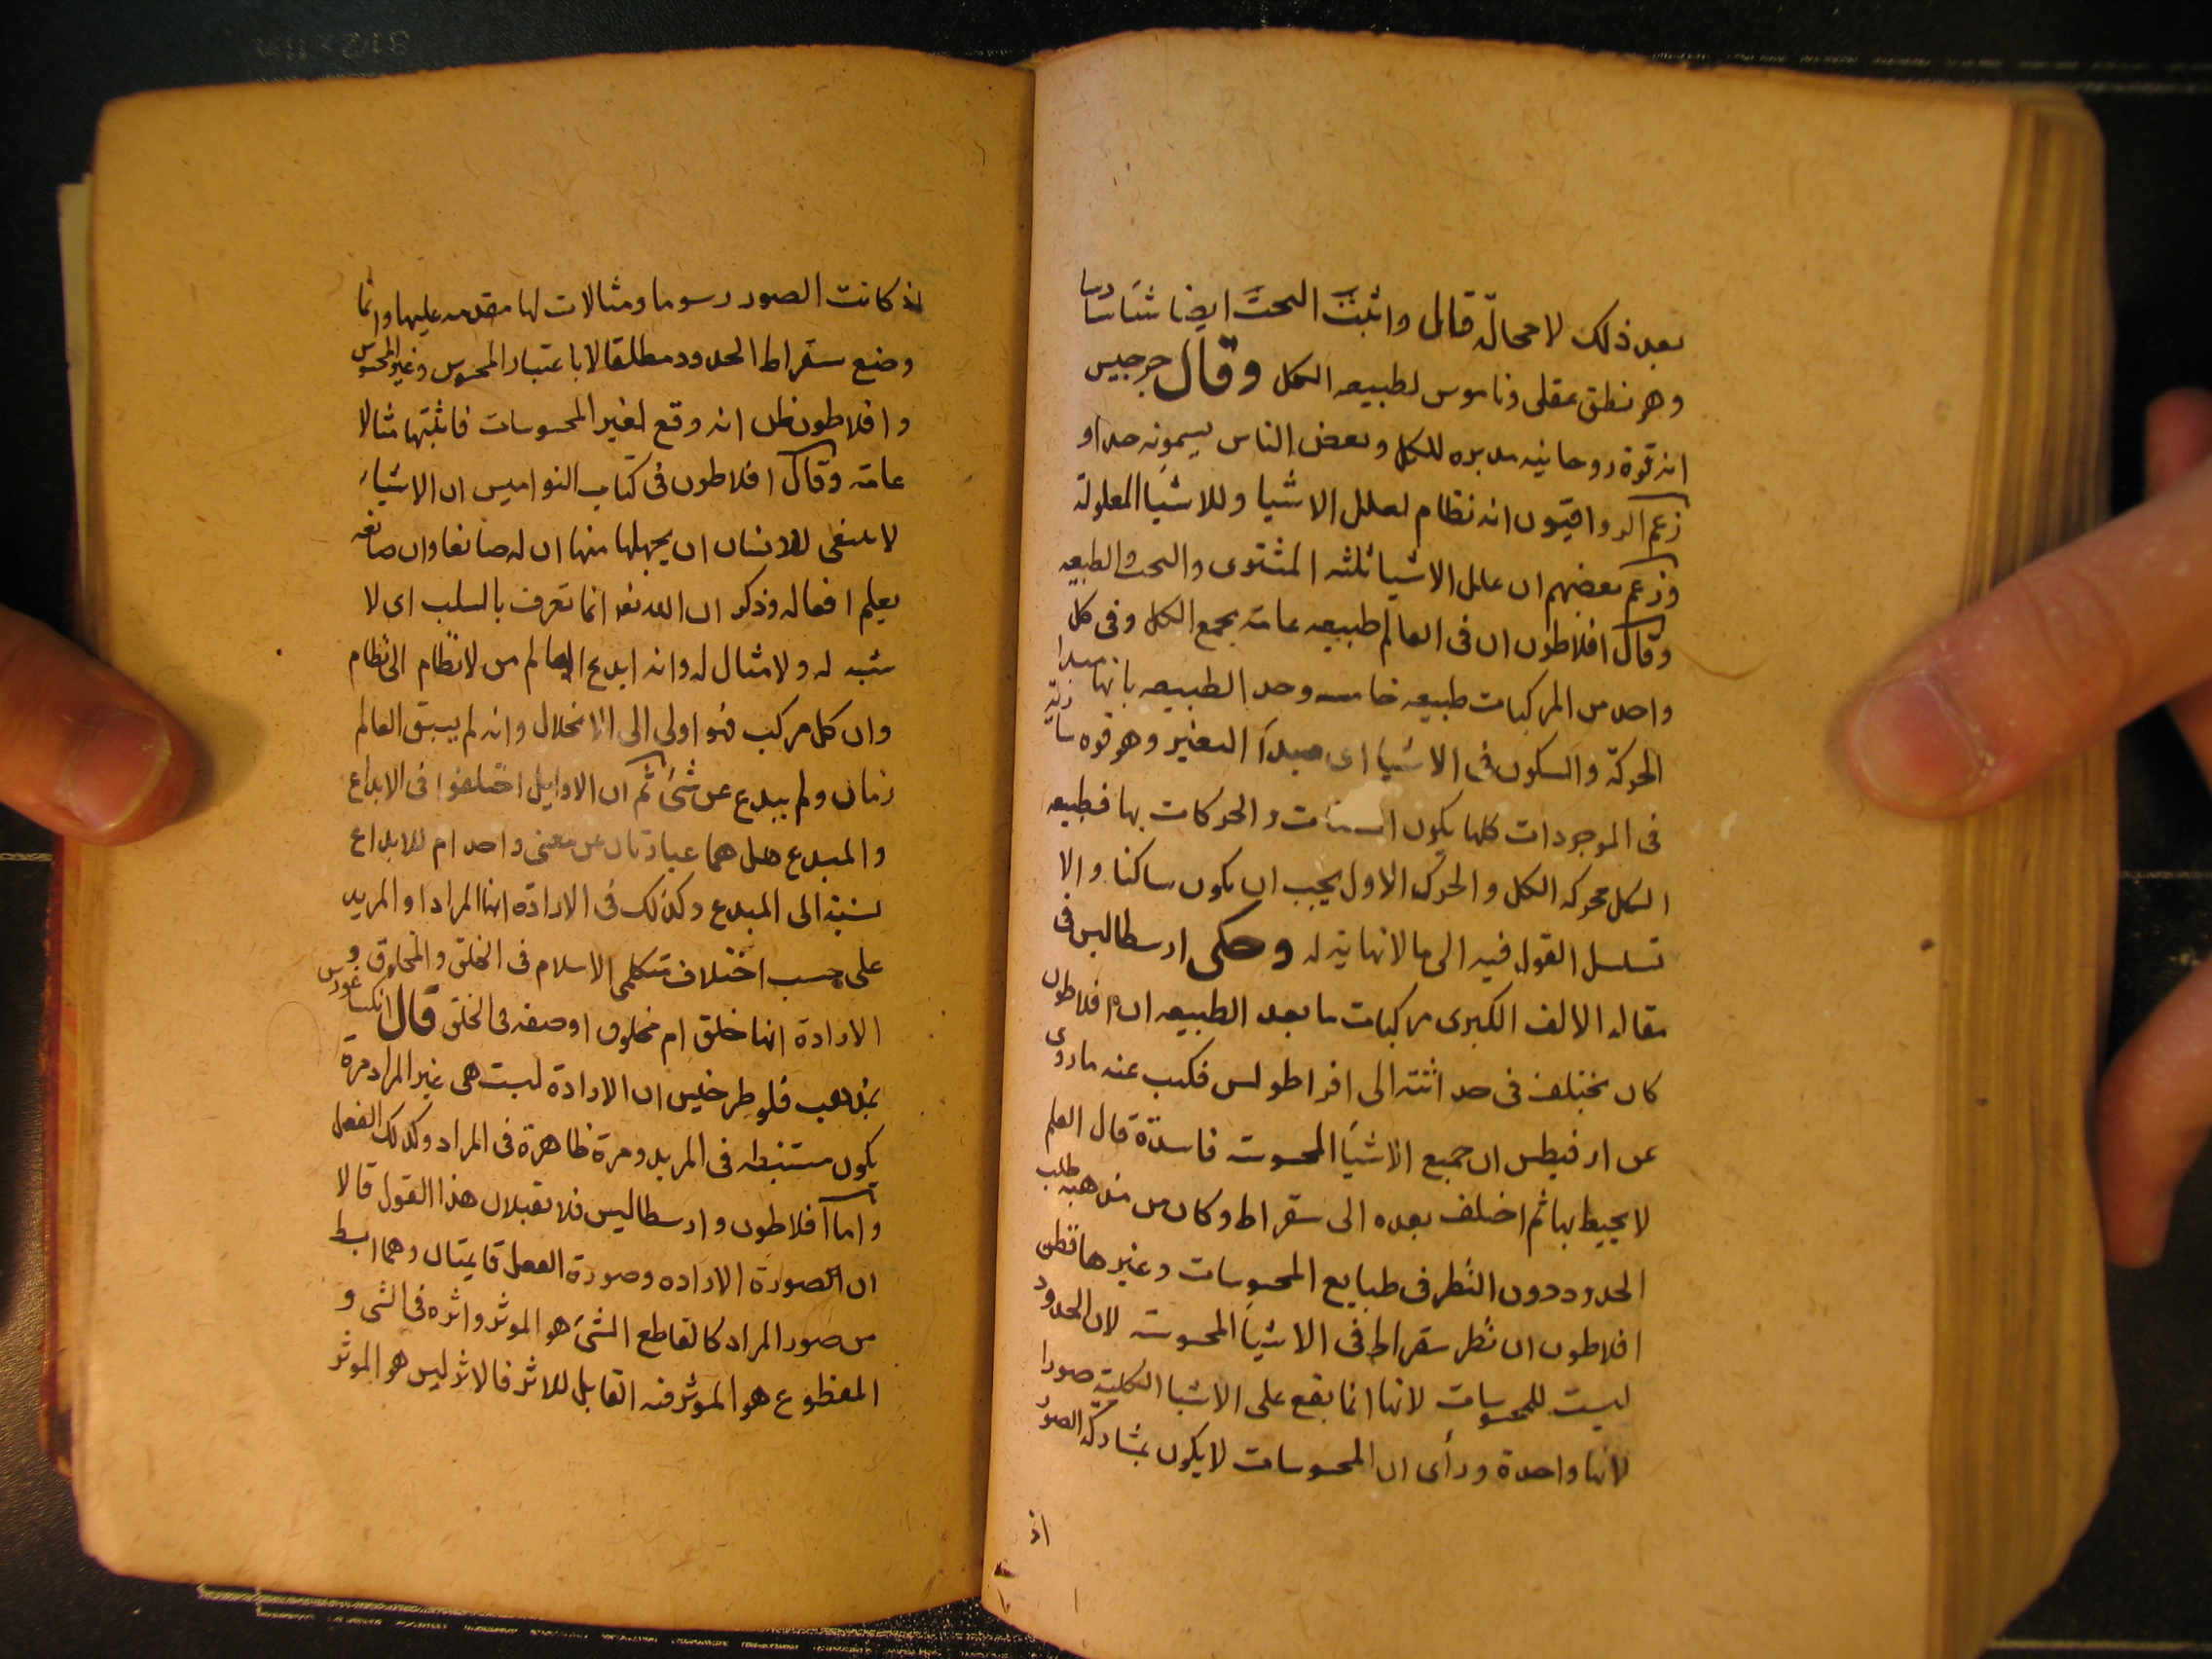 بعد ذلك لا محالة قال واثبت البحت ايضا
وهو نطق عقلى وناموس لطبيعه الكل وقال جرجيس
انه قوة روحانيه مدبره للكل وبعض الناس يسمونه حدا و
زعم الرواقيون انه نظام لعلل الاشيا وللاشيا المعلولة
وزعم بعضهم ان علل الاشيا ثلثه المشتوى والبحت والطبيعه
وقال افلاطون ان فى العالم طبيعه عامة بجمع الكل وفى كل
واحد من المركبات طبيعه خاصه وحد الطبيعه بانها مبدا
الحركة والسكون فى الاشيا اى مبدأ التغير وهو قوه سارية
فى الموجودات كلها يكون والحركات بها فطبيعه
الكل محركه الكل والمحرك الاول يجب ان يكون ساكنا والا
تسلسل القول فيه الى ما لا نهاية له وحكى ارسطاليس فى
مقاله الالف الكبرى من كبات ما بعد الطبيعه ان افلاطون
كان يختلف فى حداثته الى اقراطولس فكتب عنه ما روى
عن ارقيطس ان جميع الاشيا المحسوسة فاسدة قال العلم
لا يحيط بها ثم اختلف بعده الى سقراط وكان من مذهبه طلب
الحدود دون النظر فى طبايع المحسوسات وغيرها فظن
افلاطون ان نظر سقراط فى الاشيا المحسوسة لان الحدود
ليست للمحسوسات لانها انما يقع على الاشيا الكلية صورا
لانها واحدة وراى ان المحسوسات لا يكون بمشاركه الصور
اذ
اذ كانت الصور رسوما ومثالات لها متقدمه عليها وانما
وضع سقراط الحدود مطلقا لا باعتبار المحسوس وغير المحسوس
وافلاطون ظن انه وقع لغير المحسوسات فاثبتها مثالا
عامة وقال افلاطون فى كتاب النواميس ان الاشياء
لا ينبغى للانسان ان يجهلها منها ان له صانعا وان صانعه
يعلم افعاله وذكر ان الله تعو انما تعرف بالسلب اى لا
شبه له ولا مثال له وانه ابدع العالم من لا نظام الى نظام
وان كل مركب فهو اولى الى الانحلال وانه لم يسبق العالم
زمان ولم يبدع عن شئ ثم ان الاوايل اختلفوا فى الابداع
والمبدع هل هما عبارتان عن معنى واحد ام للابداع
نسبة الى المبدع وكذلك فى الارادة انها المراد او المريد
على حسب اختلاف متكلمى الاسلام فى الخلق والمخلوق و
الارادة انها خلق ام مخلوق او صفه فى الخلق قال انكساغورس
بمذهب فلوطرخيس ان الارادة ليست هى غير المراد مرة
يكون مستنبطه فى المريد ومرة ظاهرة فى المراد وكذلك الفعل
واما افلاطون وارسطاليس فلا يقبلان هذا القول قالا
ان الصورة الاراده وصورة الفعل قايمتان وهما ابسط
من صور المراد كالقاطع الشئ هو الموثر واثره فى الشى و
المقطوع هو الموثر فيه القابل للاثر فالاثر ليس هو الموثر